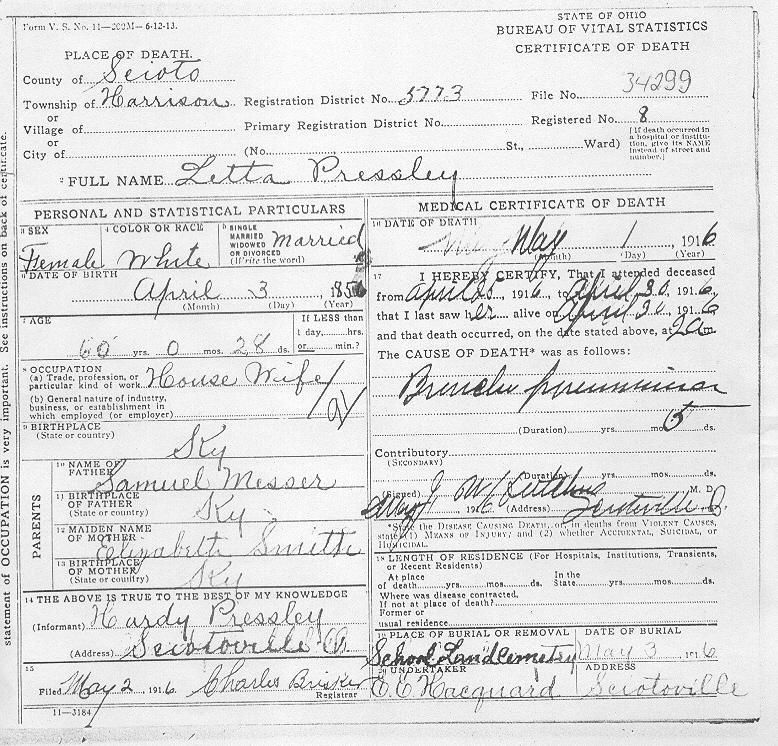 Form V. S. No. 11—200M—6-12-13.
STATE OF OHIO
BUREAU OF VITAL STATISTICS
CERTIFICATE OF DEATH
PLACE OF DEATH.
County of Scioto
Township of Harrison Registration District No. 5773 File No. 34299
or
Village of Primary Registration District No. Registered No. 8
or
City of (No. St., Ward) [If death occurred in a hospital or institution, give its NAME instead of street and number.]
2 FULL NAME Letta Pressley
PERSONAL AND STATISTICAL PARTICULARS
3 SEX Female
4 COLOR OR RACE White
5 SINGLE MARRIED WIDOWED OR DIVORCED (Write the word) Married
6 DATE OF BIRTH
April 3, 1856
(Month) (Day) (Year)
7 AGE
60 yrs. 0 mos. 28 ds.
If LESS than
1 day, hrs.
or min.?
8 OCCUPATION
(a) Trade, profession, or particular kind of work House Wife
(b) General nature of industry, business, or establishment in which employed (or employer)
9 BIRTHPLACE
(State or country) Ky
PARENTS
10 NAME OF FATHER Samuel Messer
11 BIRTHPLACE OF FATHER
(State or country) Ky
12 MAIDEN NAME OF MOTHER Elizabeth Smith
13 BIRTHPLACE OF MOTHER
(State or country) Ky
14 THE ABOVE IS TRUE TO THE BEST OF MY KNOWLEDGE
(Informant) Hardy Pressley
(Address) Sciotoville O.
15
Filed May 2, 1916. Charles Brisker
Registrar
11—3184
MEDICAL CERTIFICATE OF DEATH
16 DATE OF DEATH
May 1, 1916
(Month) (Day) (Year)
17 I HEREBY CERTIFY, That I attended deceased
from April 25, 1916 to April 30, 1916
that I last saw her alive on April 30, 1916
and that death occurred, on the date stated above, at 9 a m
The CAUSE OF DEATH* was as follows:
(Duration) yrs. mos. 5 ds.
Contributory
(SECONDARY)
(Duration) yrs. mos. ds.
(Signed) M. D.
May 1, 1916 (Address) Sciotoville O.
*State the DISEASE CAUSING DEATH, or, in deaths from VIOLENT CAUSES, state (1) MEANS OF INJURY; and (2) whether ACCIDENTAL, SUICIDAL, or HOMICIDAL.
18 LENGTH OF RESIDENCE (For Hospitals, Institutions, Transients, or Recent Residents)
At place of death yrs. mos. ds. In the State yrs. mos. ds.
Where was disease contracted, If not at place of death?
Former or usual residence
19 PLACE OF BURIAL OR REMOVAL
School Land Cemetry
DATE OF BURIAL
May 3, 1916
20 UNDERTAKER
C. E. Hacquard
ADDRESS
Sciotoville
statement of OCCUPATION is very important. See instructions on back of certificate.